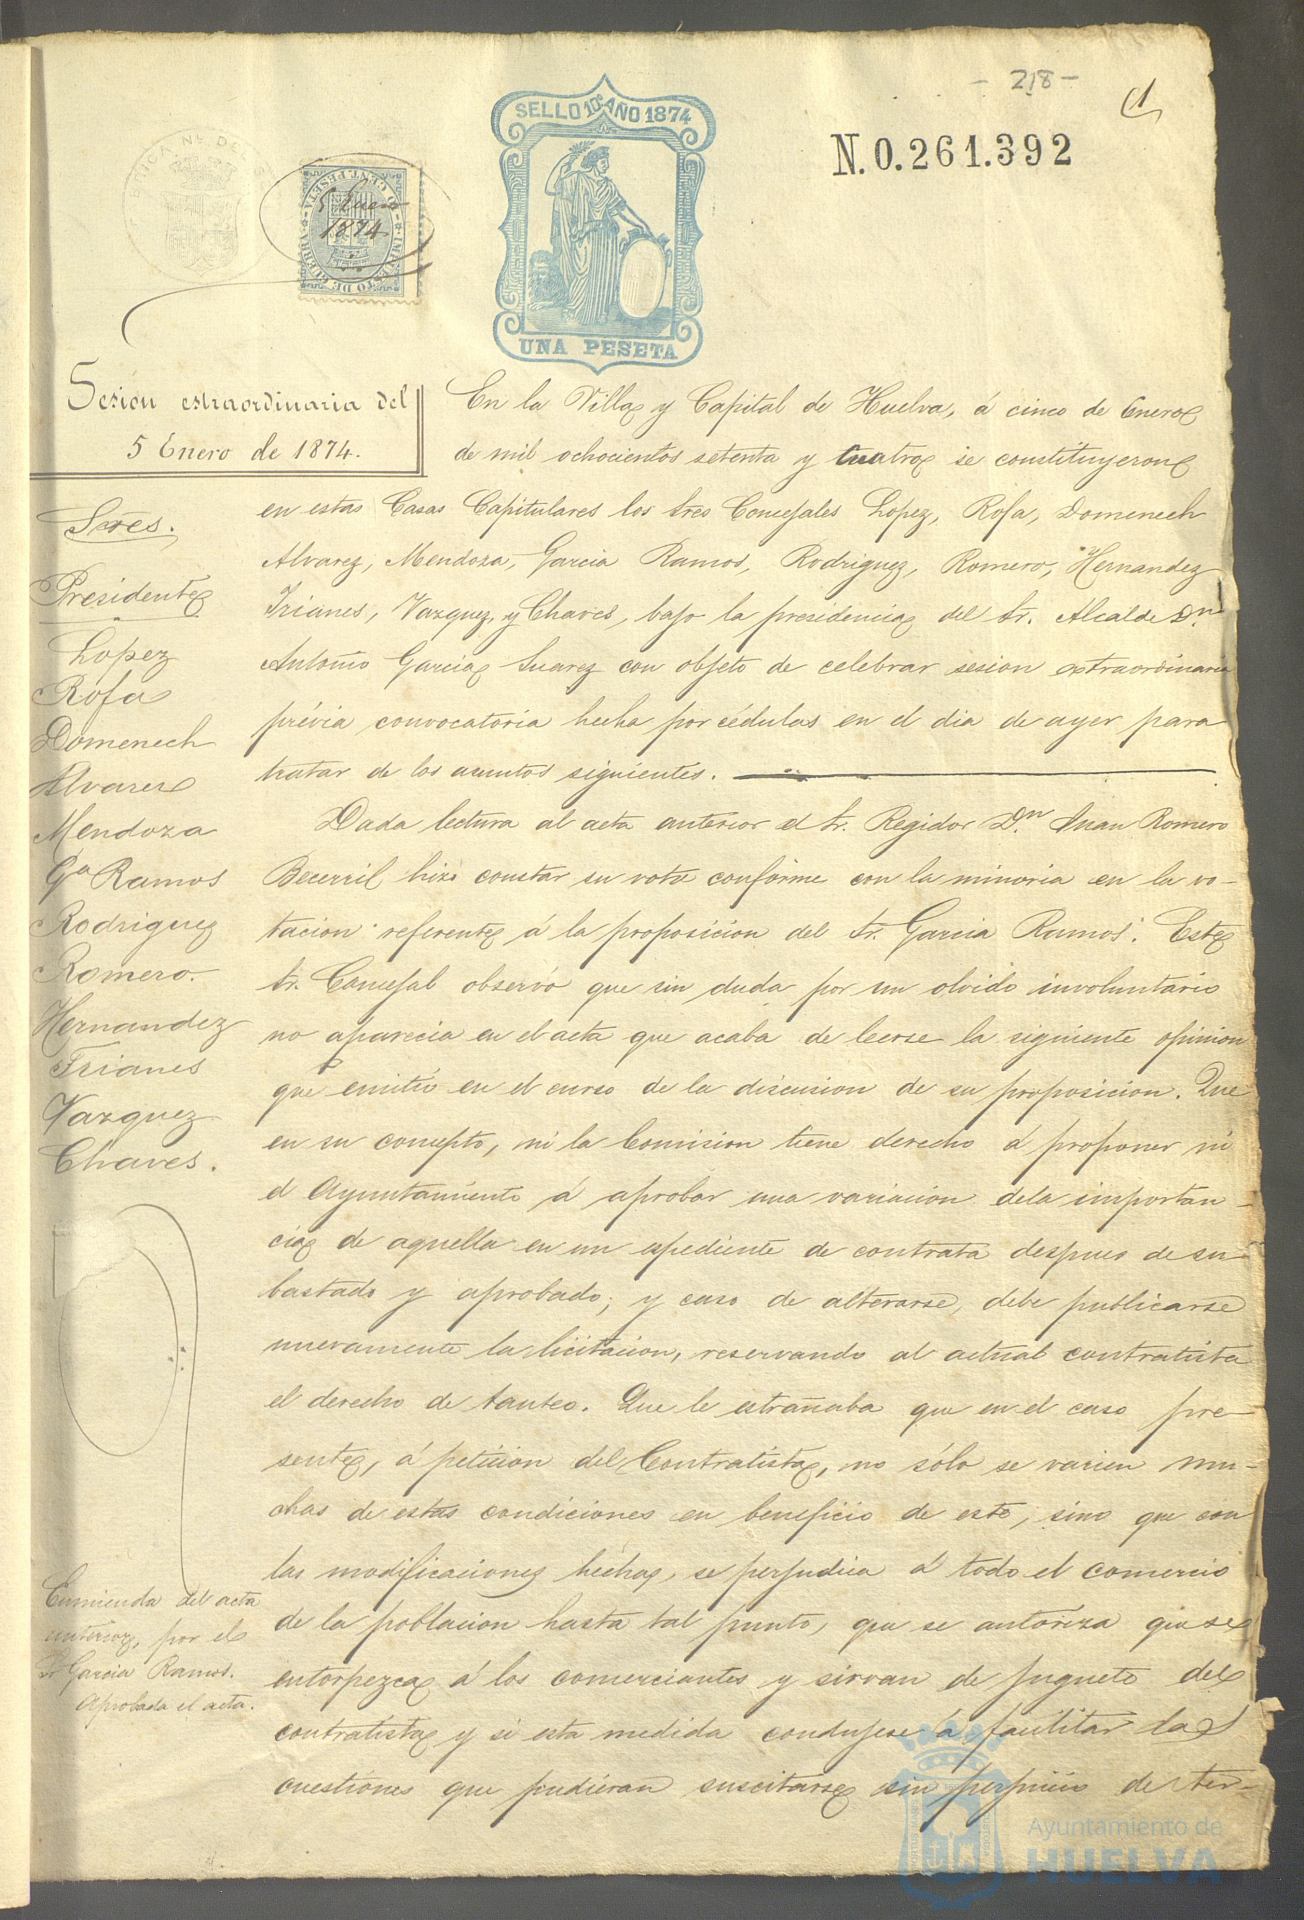 - 218 -
1
SELLO 10º AÑO 1874
N. 0.261.392
IMPUESTO DE GUERRA
10 CENT. PESETA
5 Enero
1874
UNA PESETA
Sesion estraordinaria del
5 Enero de 1874.
Sres.
Presidente
Lopez
Rofa
Domenech
Alvarez
Mendoza
Gª Ramos
Rodriguez
Romero.
Hernandez
Trianes
Vazquez
Chaves.
Enmienda del acta
anterior, por el
Sr Garcia Ramos.
Aprobada el acta.
En la Villa y Capital de Huelva, á cinco de Enero
de mil ochocientos setenta y cuatro se constituyeron
en estas Casas Capitulares los Sres Concejales Lopez, Rofa, Domenech
Alvarez, Mendoza, Garcia Ramos, Rodriguez, Romero, Hernandez
Trianes, Vazquez, y Chaves, bajo la presidencia del Sr. Alcalde Dn
Antonio Garcia Suarez con objeto de celebrar sesion extraordinaria
prévia convocatoria hecha por cédulas en el dia de ayer para
tratar de los asuntos siguientes.
Dada lectura al acta anterior el Sr. Regidor Dn Juan Romero
Becerril hizo constar su voto conforme con la minoria en la vo-
tacion referente á la proposicion del Sr. Garcia Ramos. Este
Sr. Concejal observó que sin duda por un olvido involuntario
no aparecia en el acta que acaba de leerse la siguiente opinion
que emitió en el curso de la discusion de su proposicion. Que
en su concepto, ni la Comision tiene derecho á proponer ni
el Ayuntamiento á aprobar una variacion dela importan-
cia de aquella en un espediente de contrata despues de su-
bastado y aprobado; y caso de alterarse, debe publicarse
nuevamente la licitacion, reservando al actual contratista
el derecho de tanteo. Que le estrañaba que en el caso pre-
sente, á peticion del Contratista, no sólo se varien mu-
chas de estas condiciones en beneficio de este, sino que con
las modificaciones hechas, se perjudica á todo el comercio
de la poblacion hasta tal punto, que se autoriza que se
entorpezca á los comerciantes y sirvan de juguete del
contratista y si esta medida condujese á facilitar las
cuestiones que pudieran suscitarse sin perjuicio de ter-
Ayuntamiento de
HUELVA